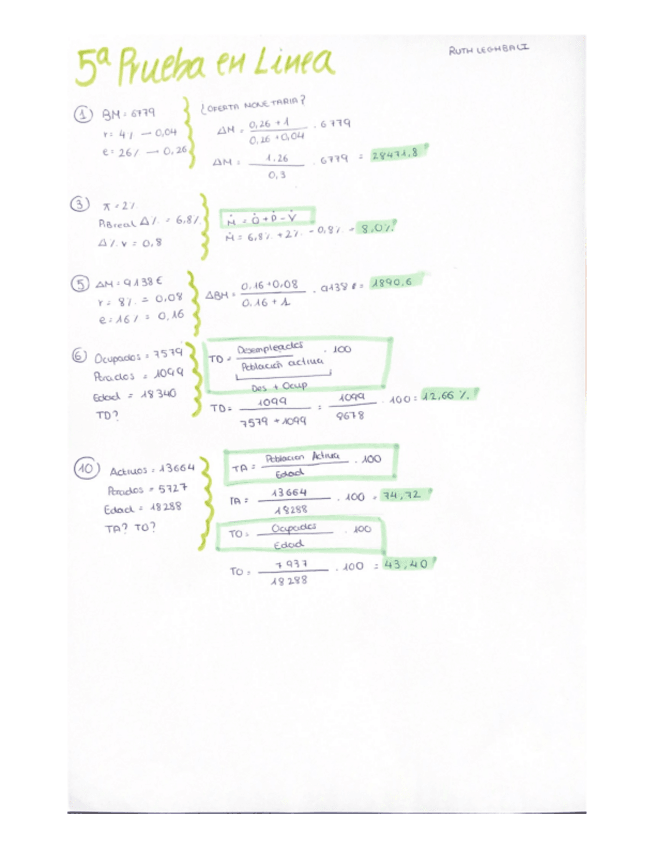 5ª Prueba en Linea
RUTH LEGHBALI
① BM = 6779
r = 4% → 0,04
e = 26% → 0,26
¿OFERTA MONETARIA?
ΔM = (0,26 + 1) / (0,26 + 0,04) · 6779
ΔM = 1,26 / 0,3 · 6779 = 28471,8
③ π = 2%
PiBreal Δ% = 6,8%
Δ% v = 0,8
Ṁ = Q̇ + Ṗ - V̇
Ṁ = 6,8% + 2% - 0,8% = 8,0%
⑤ ΔM = 9138 €
r = 8% = 0,08
e = 16% = 0,16
ΔBM = (0,16 + 0,08) / (0,16 + 1) · 9138 € = 1890,6
⑥ Ocupados = 7579
Parados = 1099
Edad = 18340
TD?
TD = Desempleados / Población activa · 100
Des + Ocup
TD = 1099 / (7579 + 1099) = 1099 / 8678 · 100 = 12,66 %
⑩ Activos = 13664
Parados = 5727
Edad = 18288
TA? TO?
TA = Población Activa / Edad · 100
TA = 13664 / 18288 · 100 = 74,72
TO = Ocupados / Edad · 100
TO = 7937 / 18288 · 100 = 43,40